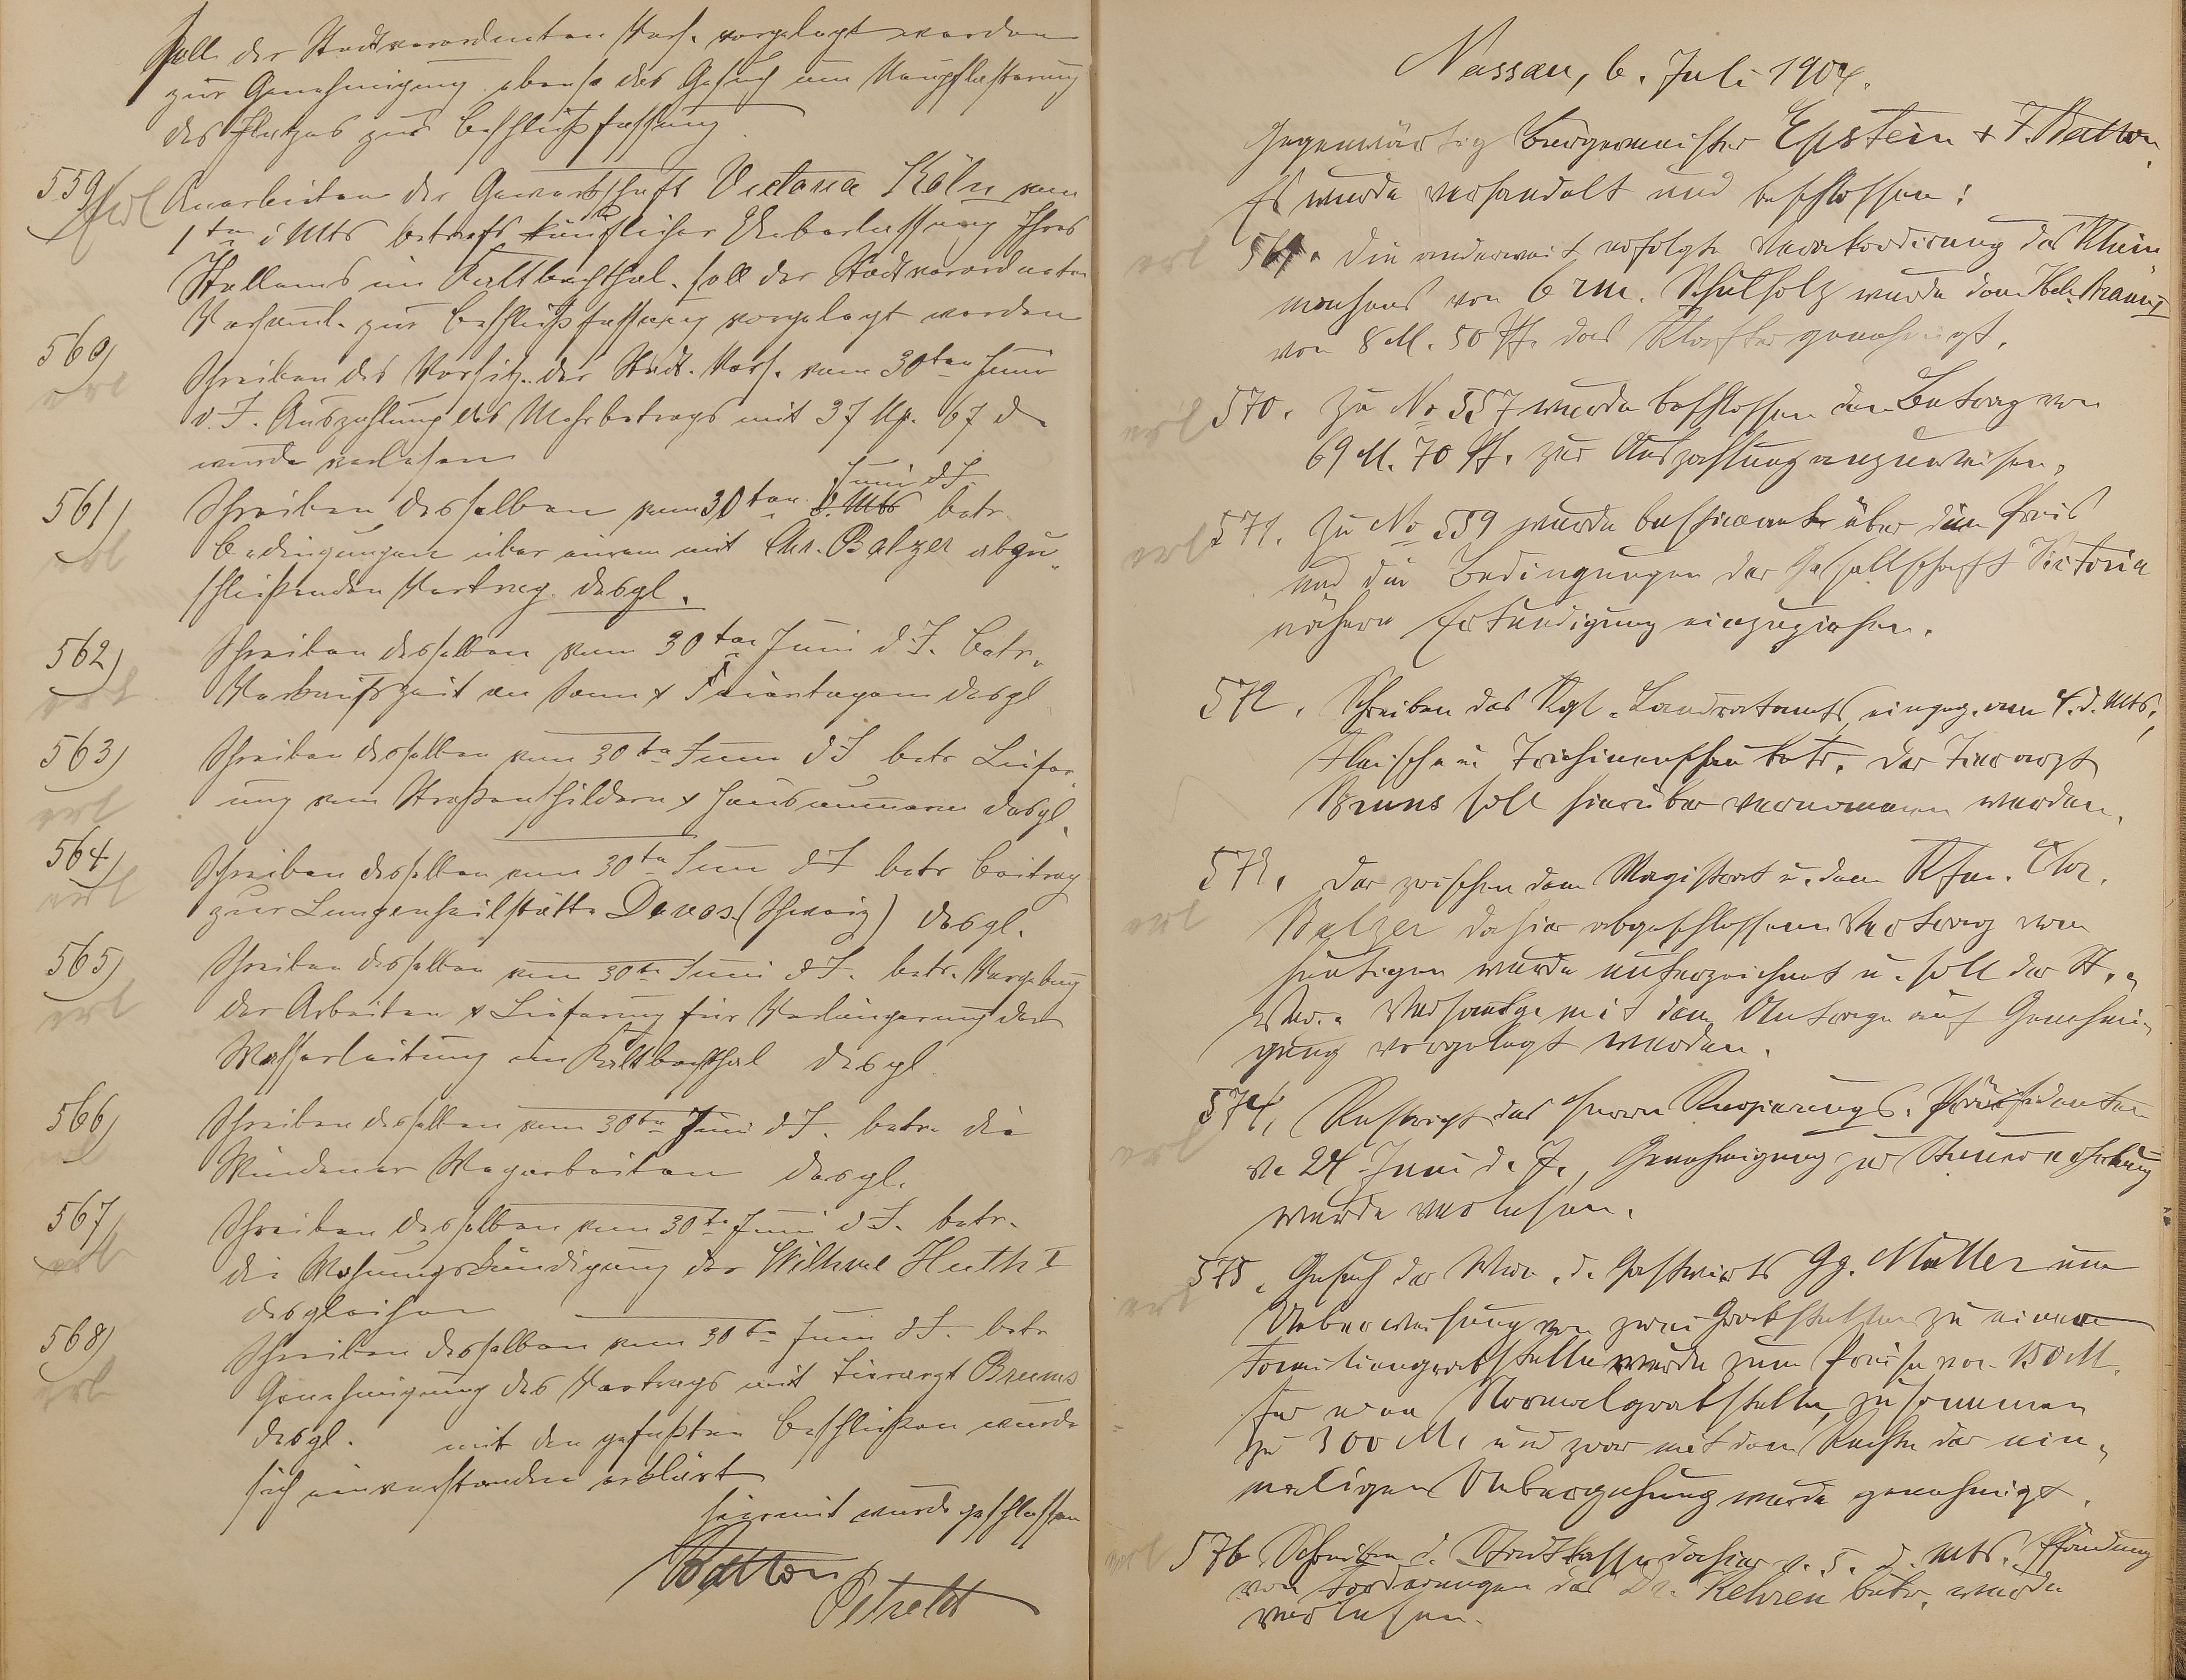 soll der Stadtverordneten Vers. vorgelegt werden
zur Genehmigung ebenso das Gesuch um Neupflasterung
des Platzes zur Beschlußfassung.
559) erl Anerbieten der Gewerkschaft Victoria Köln vom
1ten d Mts betreffs käuflicher Ueberlassung Ihres
Stollens im Kaltbachthal. soll der Stadtverordneten
Versaml. zur Beschlußfassung vorgelegt werden
560) erl Schreiben des Vorsitz. der Stadt. Vers. vom 30ten Juni
d. J. Auszahlung des Mehrbetrags mit 37 Mk. 67 d
wurde verlesen
561) erl Schreiben desselben vom 30ten d. Mts Juni d J. betr.
Bedingungen über einen mit Chr. Balzer abzu„
schließenden Vertrag. desgl.
562) erl Schreiben desselben vom 30ten Juni d. J. betr.
Verkaufszeit an Sonn & Feiertagen desgl
563) erl Schreiben desselben vom 30ten Juni d J betr Liefer
ung von Straßenschildern & Hausnummern desgl.
564) erl Schreiben desselben vom 30ten Juni d J betr Beitrag
zur Lungenheilstätte Davos (Schweiz) desgl.
565) erl Schreiben desselben vom 30ten Juni d J. betr. Vergebung
der Arbeiten & Lieferung für Verlängerung der
Wasserleitung im Kaltbachthal desgl.
566) erl Schreiben desselben vom 30ten Juni d J. betr. die
Windener Wegarbeiten desgl.
567) erl Schreiben desselben vom 30ten Juni d J. betr.
die Wohnungskündigung des Wilhelm Huth I
desgleichen
568) erl Schreiben desselben vom 30ten Juni d J. betr
Genehmigung des Vertrags mit Tierarzt Bruns
desgl. mit den gefaßten Beschlüssen wurde
sich einverstanden erklärt
hiermit wurde geschlossen
Batton
Nassau, 6. Juli 1904.
Gegenwärtig Bürgermeister Epstein & F. Batton
Es wurde verhandelt und beschlossen:
erl 569. Die anderweit erfolgte Verakkordierung des Klein
machens von 6 rm. Schulholz wurde dem
von 8 M. 50 Pf. das Klafter genehmigt.
erl 570. Zu No 557 wurde beschlossen den Betrag von
69 M. 70 Pf. zur Auszahlung anzuweisen.
erl 571. Zu No 559 wurde über den Preis
und die Bedingungen der Gesellschaft Victoria
nähere Erkundigung einzuziehen.
572. Schreiben des Kgl. Landratamts, eingeg. am 4. d. Mts,
Fleisch u Trichinenschau betr. Der Tierarzt
Bruns soll hierüber vernommen werden.
erl 573. Der zwischen dem Magistrat u. dem Kfm. Chr.
Balzer dahier abgeschlossene Vertrag vom
heutigen wurde unterzeichnet u. soll der St.„
Ver. mit dem Antrage auf Genehmi„
gung vorgelegt werden.
erl 574. Reskript des Herrn Regierungs. Präsidenten
v. 24 Juni d. J., Genehmigung zur Steuererhebung
wurde verlesen.
erl 575. Gesuch der Wwe. d. Gastwirts Gg. Müller um
Ueberweisung von zwei Grabstellen zu einem
Familiengrabstelle wurde zum Preise von 150 M.
für eine Normalgrabstelle, zusammen
zu 300 M. und zwar mit dem Rechte der ein„
maligen Uebergehung wurde genehmigt.
erl 576 Schreiben d. Stadtkasse dahier v. 5. d. Mts. Pfändung
von Forderungen des Dr. Kehren betr. wurde
verlesen.